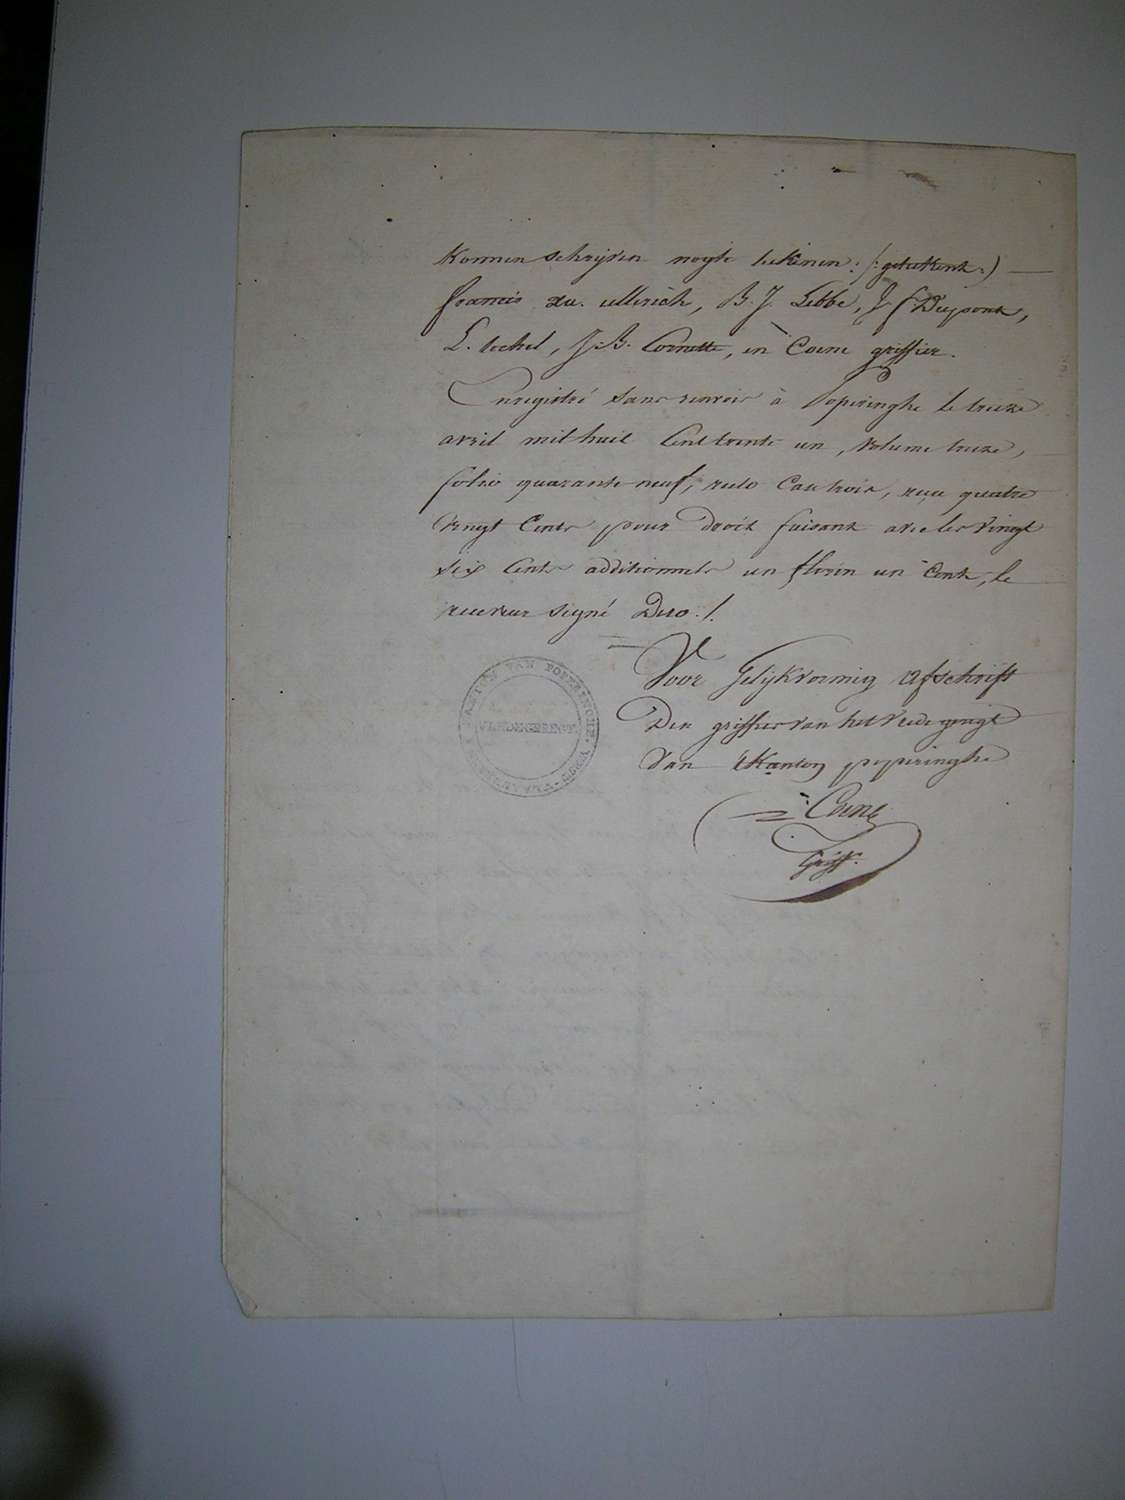 konnen schryven nogte teekenen: /: geteekent :)
francis xav. ullerick, B. J. Lebbe, J f Dupont,
L. techel, J. B. Cornette, en Coene griffier.
Enregistré sans renvoie à Poperinghe le treize
avril mil huit Cent trente un, volume treize,
folio quarante neuf, recto Case trois, reçu quatre
vingt Cents pour droit faisant avec les vingt
six Cents additionnels un florin un Cents, le
receveur signé Duo ./.
Voor Gelykvormig afschrift
Den griffier van het vrede geregt
van 't Kanton poperinghe
Coene
Griff.
KANTON VAN POPERINGHE. WEST-VLAANDEREN
VREDEGEREGT.